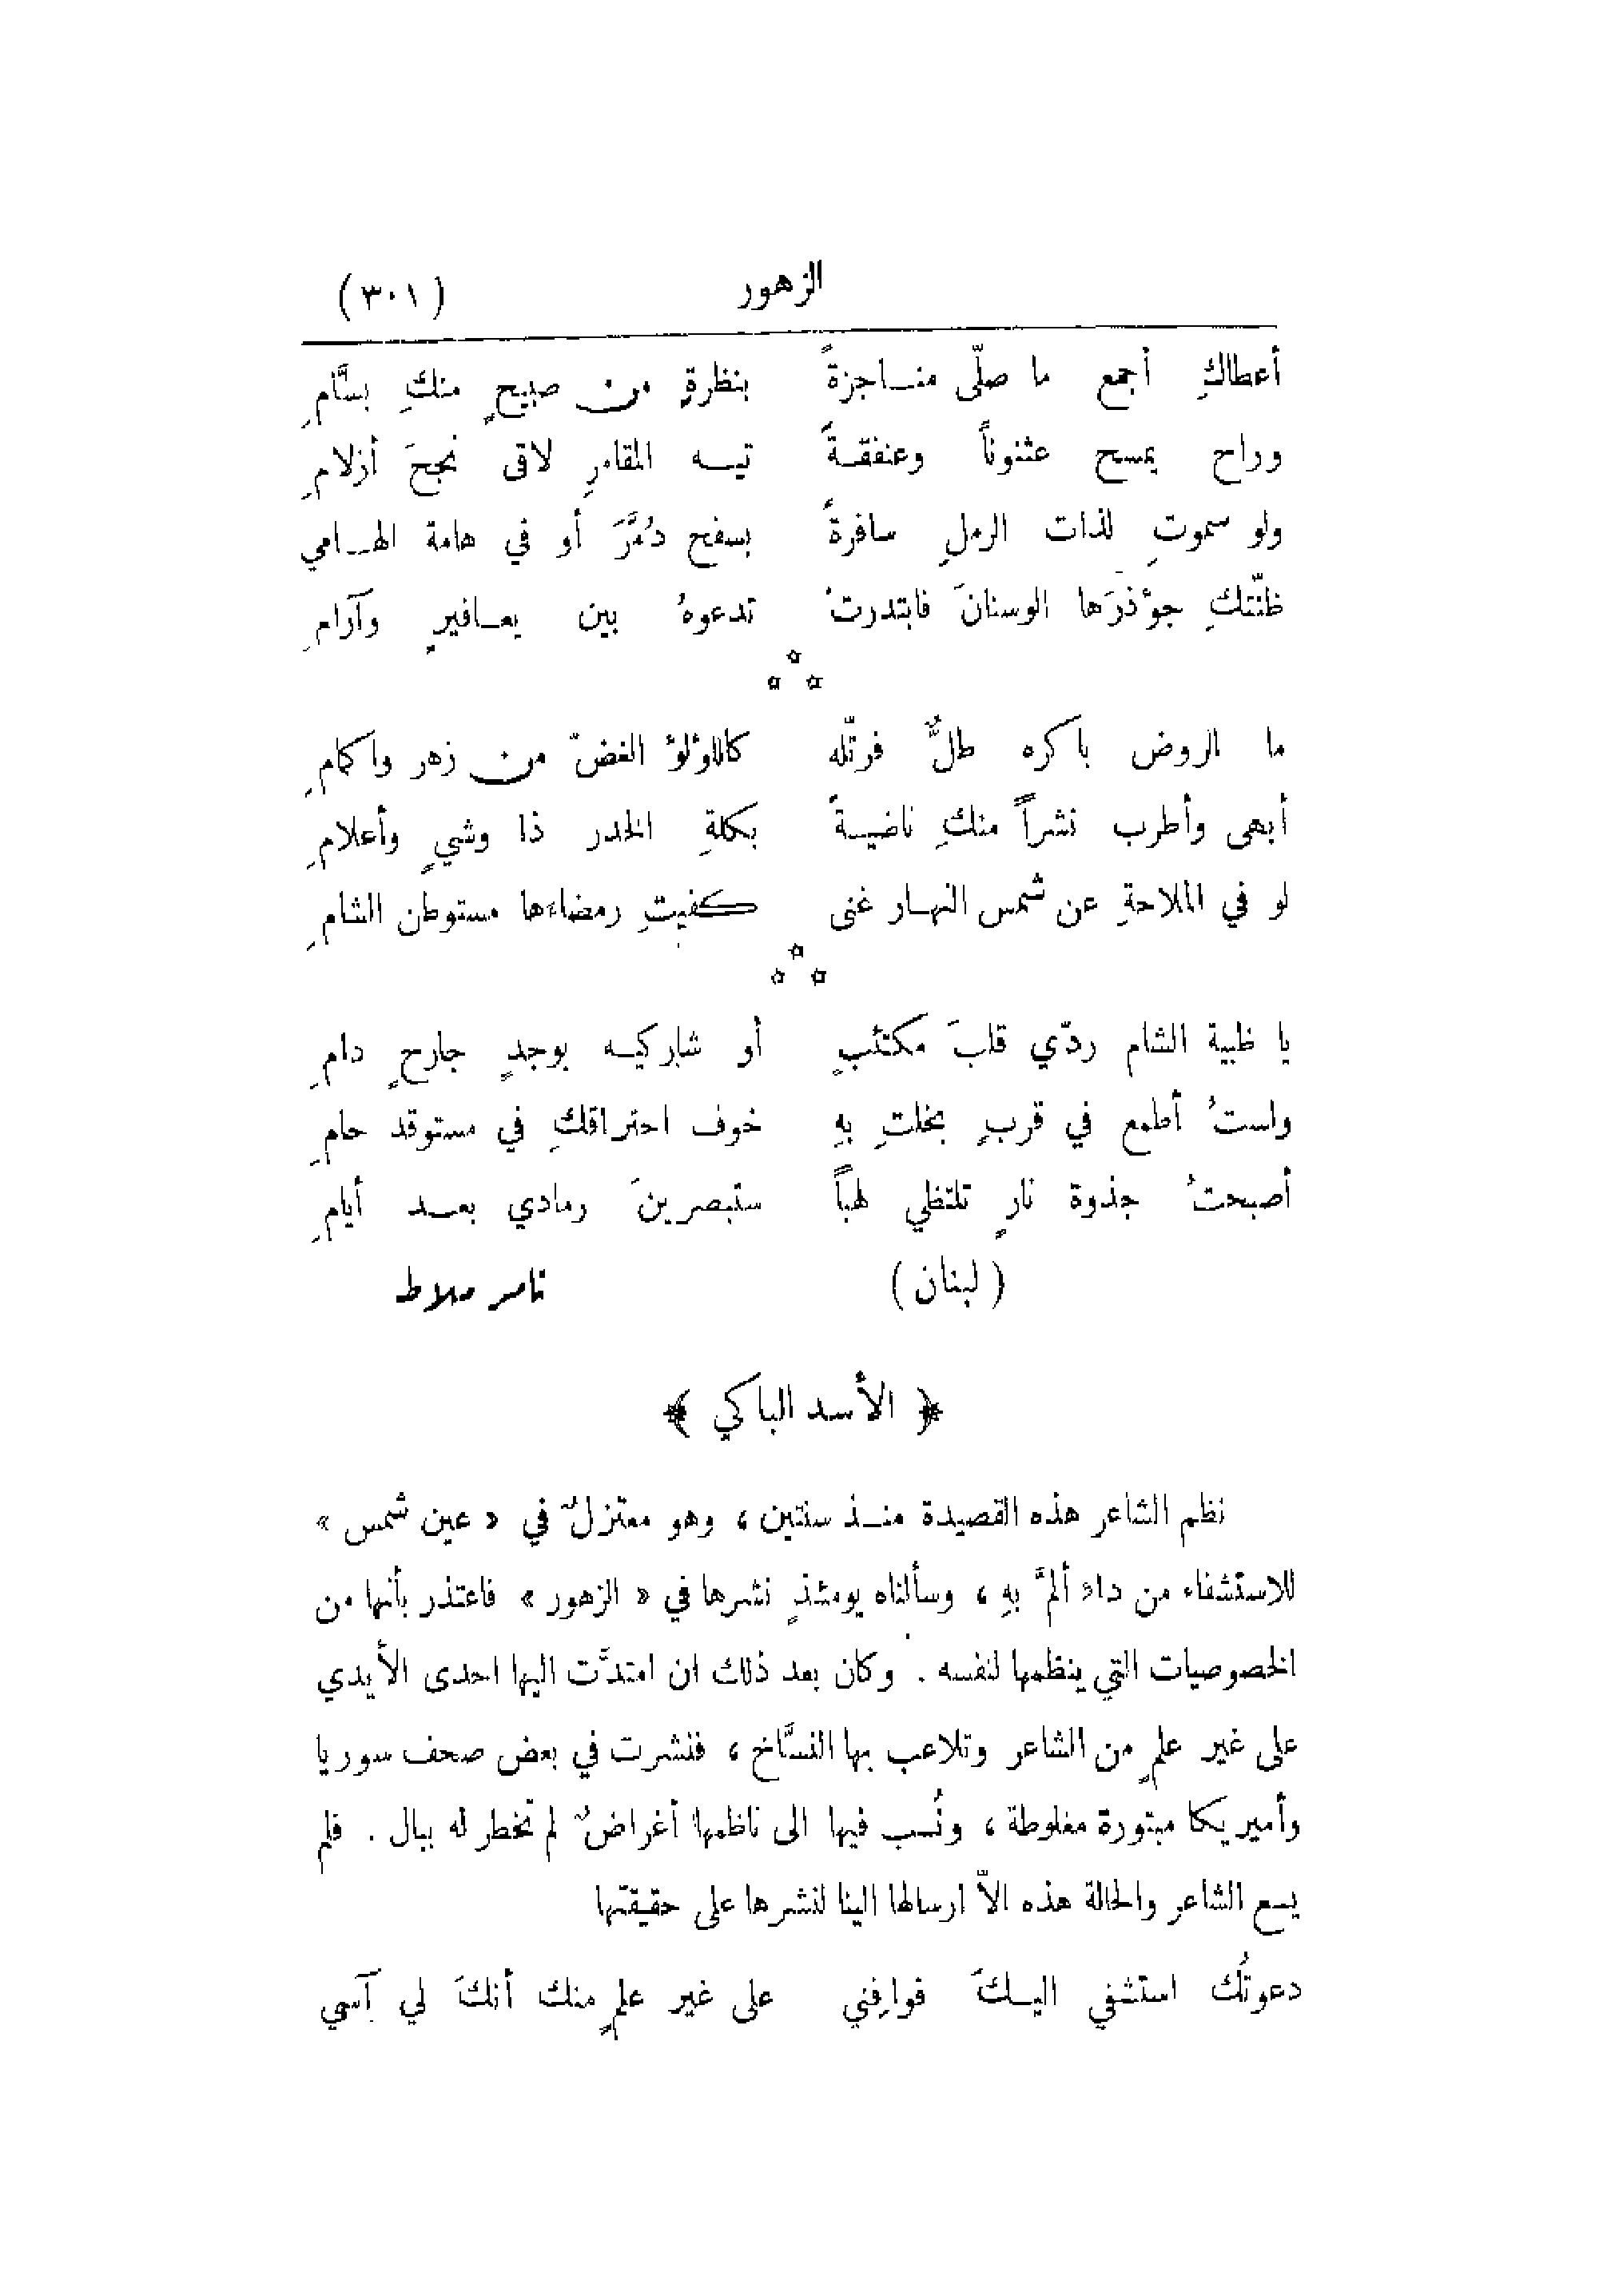 الزهور (٣٠١)
أعطاكِ أجمع ما صلّى منـاجزةً بنظرةٍ من صبيحٍ منكِ بسَّامِ
وراح يمسح عثنوناً وعنفقـةً تيـه المقامرِ لاقى نجحَ أزلامِ
ولو سموتِ لذات الرملِ سافرةً بسفح دُمَّرَ أو في هامة الهـامي
ظنّتكِ جوْذرَها الوسنانَ فابتدرتْ تدعوهُ بين يعـافيرٍ وآرامِ
ما الروض باكره طلٌّ فرتّله كاللوْلوْ الغضّ من زهر واكمامِ
أبهى وأطرب نشراً منكِ ناضيـةً بكلةِ الخدر ذا وشيٍ وأعلامِ
لو في الملاحةِ عن شمس النهـار غنى كفيتِ رمضاءها مستوطن الشامِ
يا ظبية الشام ردّي قلبَ مكتئبٍ أو شاركيـه بوجدٍ جارحٍ دامِ
ولستُ أطمع في قربٍ بخلتِ بهِ خوف احتراقكِ في مستوقد حامِ
أصبحتُ جذوة نارٍ تلتظي لهباً ستبصرينَ رمادي بعـد أيامِ
(لبنان) تامر ملاط
﴿ الأسد الباكي ﴾
نظم الشاعر هذه القصيدة منـذ سنتين ، وهو معتزلٌ في « عين شمس »
للاستشفاء من داءٍ ألمَّ بهِ ، وسألناه يومئذٍ نشرها في « الزهور » فاعتذر بأنها من
الخصوصيات التي ينظمها لنفسه . وكان بعد ذلك ان امتدَّت اليها احدى الأيدي
على غير علمٍ من الشاعر وتلاعب بها النسَّاخ ، فنشرت في بعض صحف سوريا
وأميريكا مبتورة مغلوطة ، ونُسب فيها الى ناظمها أغراضٌ لم تخطر له ببال . فلم
يسع الشاعر والحالة هذه الاّ ارسالها الينا لنشرها على حقيقتها
دعوتُك استشفي اليـكَ فوافِني على غير علمٍ منك أنكَ لي آسي